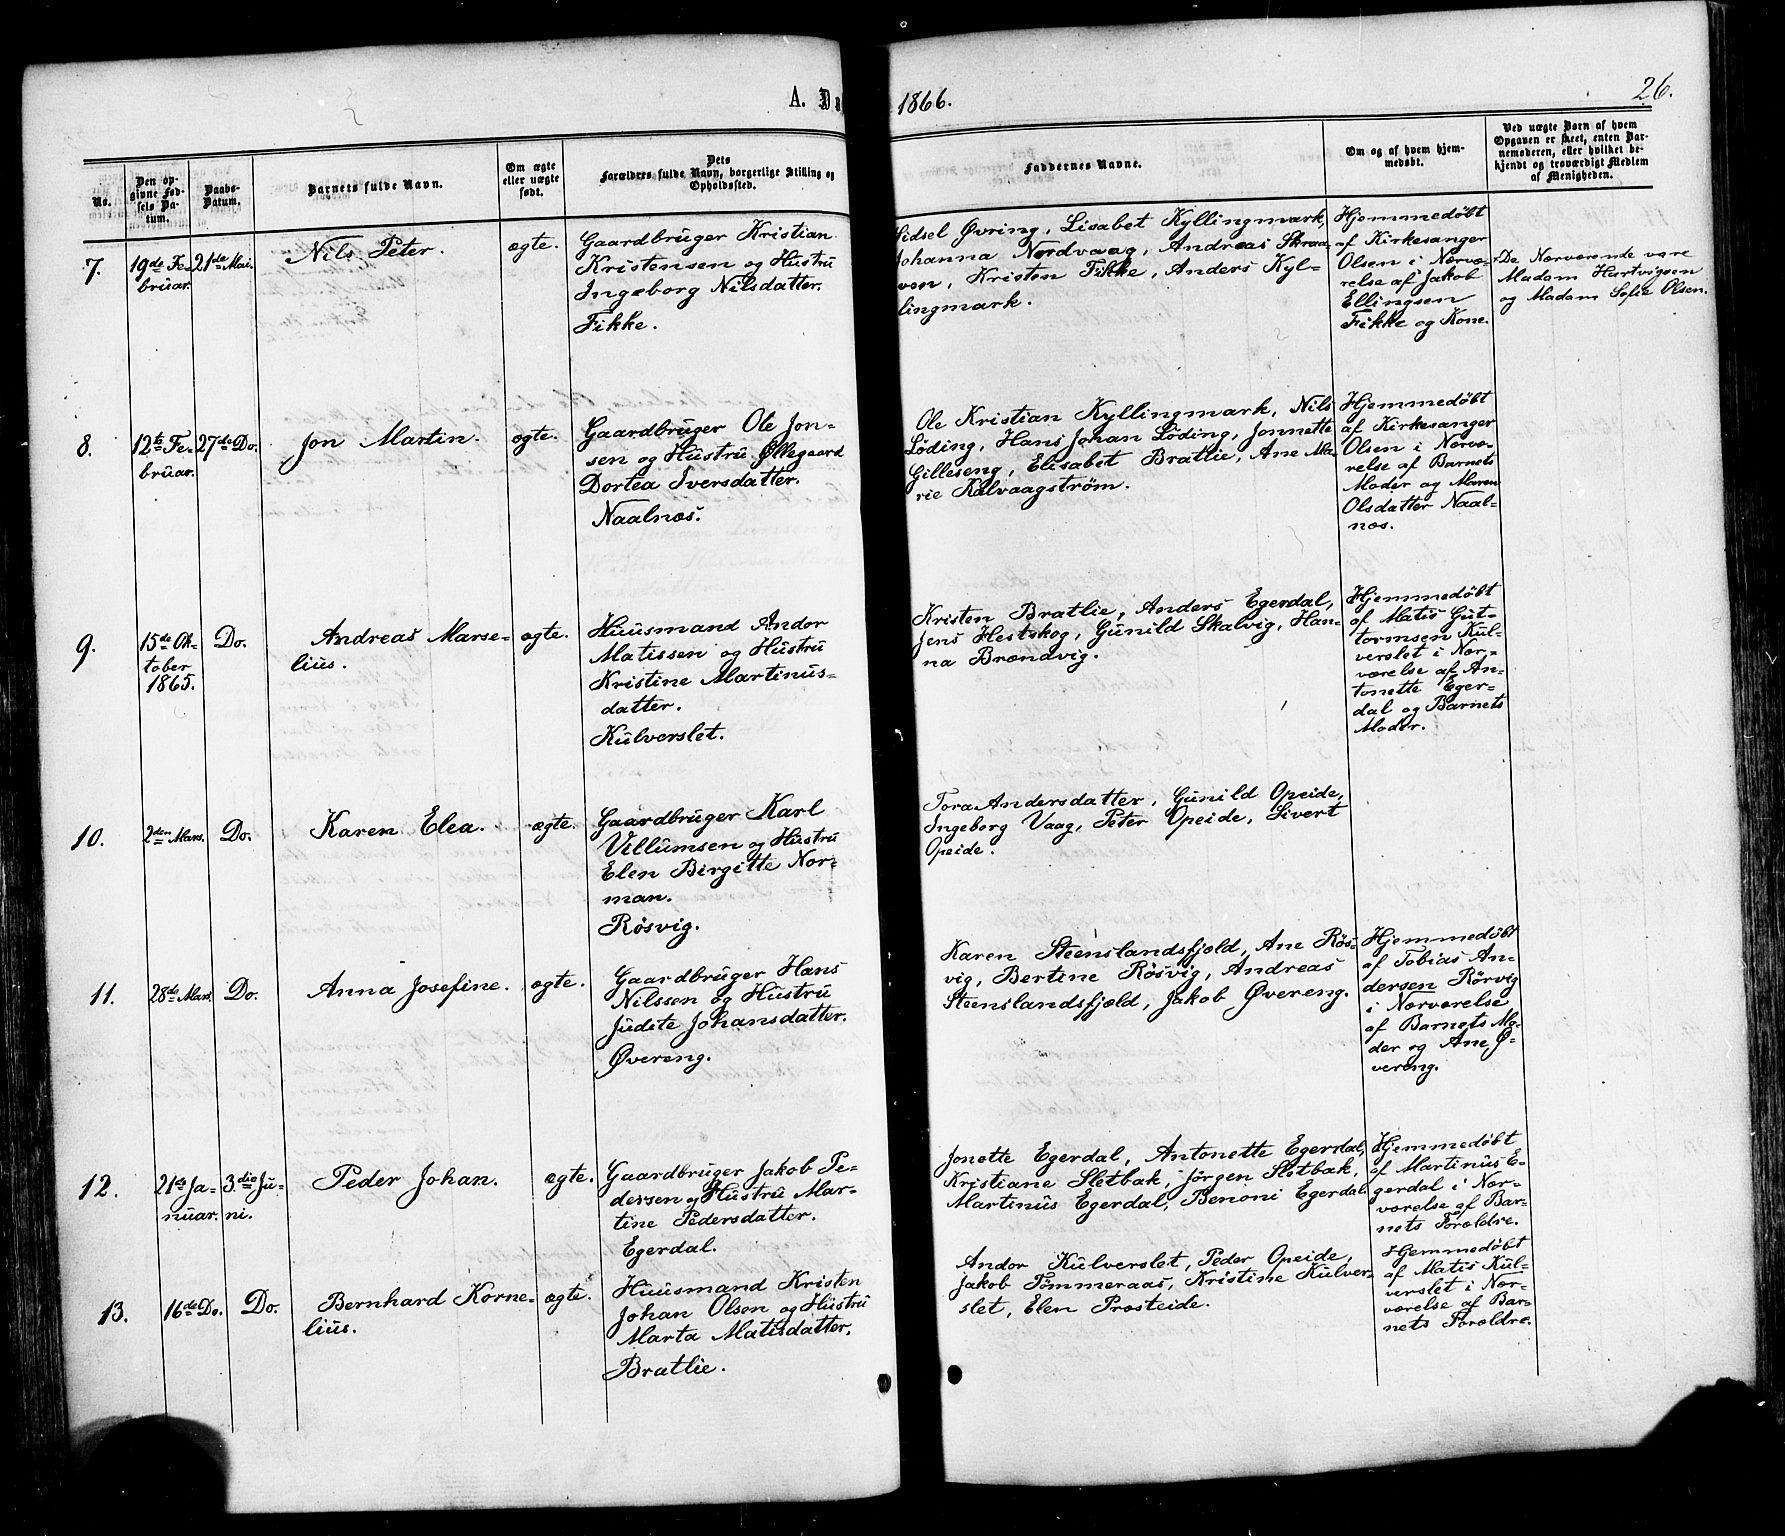 A. Dø
1866.
26.
No.
Den op-
givne Fød-
sels Da-
tum.
Daabs-
Datum.
Barnets fulde Navn.
Om ægte
eller uægte
født.
Dets
Forældres fulde Navn, borgerlige Stilling og
Opholdssted.
Faddernes Navne.
Om og af hvem hjem-
medøbt.
Ved uægte Børn af hvem
Opgaven er skeet, enten Bar-
nemoderen, eller hvilket be-
kjendt og troværdigt Medlem
af Menigheden.
7.
19de Fe-
bruar.
21de Mai.
Nils Peter.
ægte.
Gaardbruger Kristian
Kristensen og Hustru
Ingeborg Nilsdatter.
Fikke.
Sidsel Øvring, Lisabet Kyllingmark,
Johanna Nordvaag, Andreas Skraa-
ven, Kristen Fikke, Anders Kyl-
lingmark.
Hjemmedøbt
af Kirkesanger
Olsen i Nærvæ-
relse af Jakob
Ellingsen
Fikke og Kone.
De Nærværende vare
Madam Hartvigsen
og Madam Sofie Olsen.
8.
12te Fe-
bruar.
27de Do.
Jon Martin.
ægte.
Gaardbruger Ole Jon-
sen og Hustru Øllegaard
Dortea Iversdatter.
Naalnæs.
Ole Kristian Kyllingmark, Nils
Löding, Hans Johan Löding, Jonnette
Gilleseng, Elisabet Bratlie, Ane Ma-
rie Kalvaagstrøm.
Hjemmedøbt
af Kirkesanger
Olsen i Nærvæ-
relse af Barnets
Moder og Maren
Olsdatter Naal-
næs.
9.
15de Ok-
tober
1865.
Do.
Andreas Marse-
lius.
ægte.
Huusmand Andor
Matissen og Hustru
Kristine Martinus-
datter.
Kulverslet.
Kristen Bratlie, Anders Egerdal,
Jens Hestskog, Gunild Skalvig, Han-
na Brændvig.
Hjemmedøbt
af Matis Gut-
tormsen Kul-
verslet i Nær-
værelse af An-
tonette Eger-
dal og Barnets
Moder.
10.
2den Mars.
Do.
Karen Elea.
ægte.
Gaardbruger Karl
Villumsen og Hustru
Elen Birgitte Nor-
man.
Røsvig.
Tora Andersdatter, Gunild Opeide,
Ingeborg Vaag, Peter Opeide, Sivert
Opeide.
11.
28de Mars.
Do.
Anna Josefine.
ægte.
Gaardbruger Hans
Nilssen og Hustru
Judite Johansdatter.
Øvereng.
Karen Steenslandsfjeld, Ane Røs-
vig, Bertine Røsvig, Andreas
Steenslandsfjeld, Jakob Øvereng.
Hjemmedøbt
af Tobias An-
dersen Rörvig
i Nærværelse
af Barnets Mo-
der og Ane Ø-
vereng.
12.
21de Ja-
nuar.
3die Ju-
ni.
Peder Johan.
ægte.
Gaardbruger Jakob Pe-
dersen og Hustru Mar-
tine Pedersdatter.
Egerdal.
Jonette Egerdal, Antonette Egerdal,
Kristiane Sletbak, Jörgen Sletbak,
Martinus Egerdal, Benoni Egerdal.
Hjemmedøbt
af Martinus E-
gerdal i Nær-
værelse af Bar-
nets Forældre.
13.
16de Do.
Do.
Bernhard Korne-
lius.
ægte.
Huusmand Kristen
Johan Olsen og Hustru
Marta Matisdatter.
Bratlie.
Andor Kulverslet, Peder Opeide,
Jakob Tømmeraas, Kristine Kulver-
slet, Elen Prosteide.
Hjemmedøbt
af Matis Kul-
verslet i Nær-
værelse af Bar-
nets Forældre.